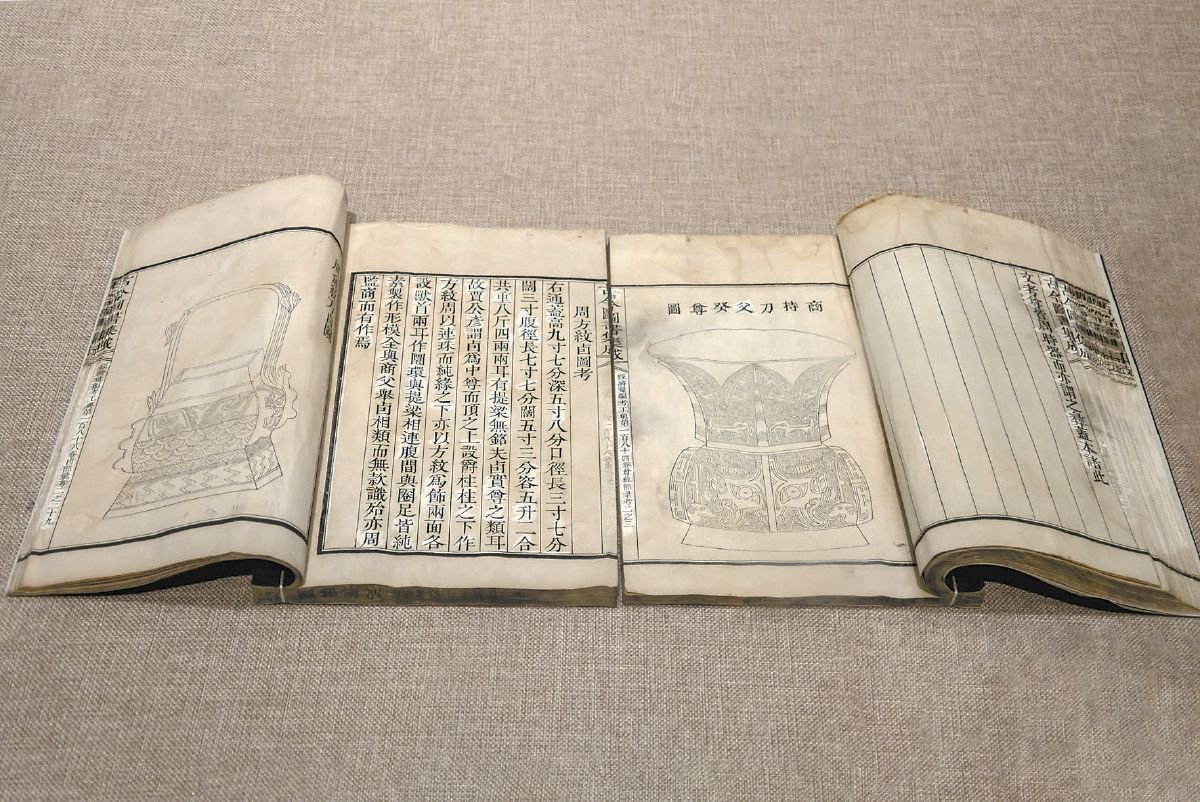 商持刀父癸尊圖
古今圖書集成
周方紋卣圖考
右通蓋高九寸七分深五寸八分口徑長三寸七分
闊三寸腹徑長七寸七分闊五寸三分容五升二合
共重八斤四兩兩耳有提梁無銘夫卣實尊之類耳
故賈公彥謂卣爲中尊而頂之上設爵柱柱之下作
方紋周以連珠而純緣之下亦以方紋爲飾兩面各
設獸首兩耳作圜環與提梁相連腹間與圈足皆純
素製作形模全與商父舉卣相類而無款識殆亦周
監商而有作焉
古今圖書集成